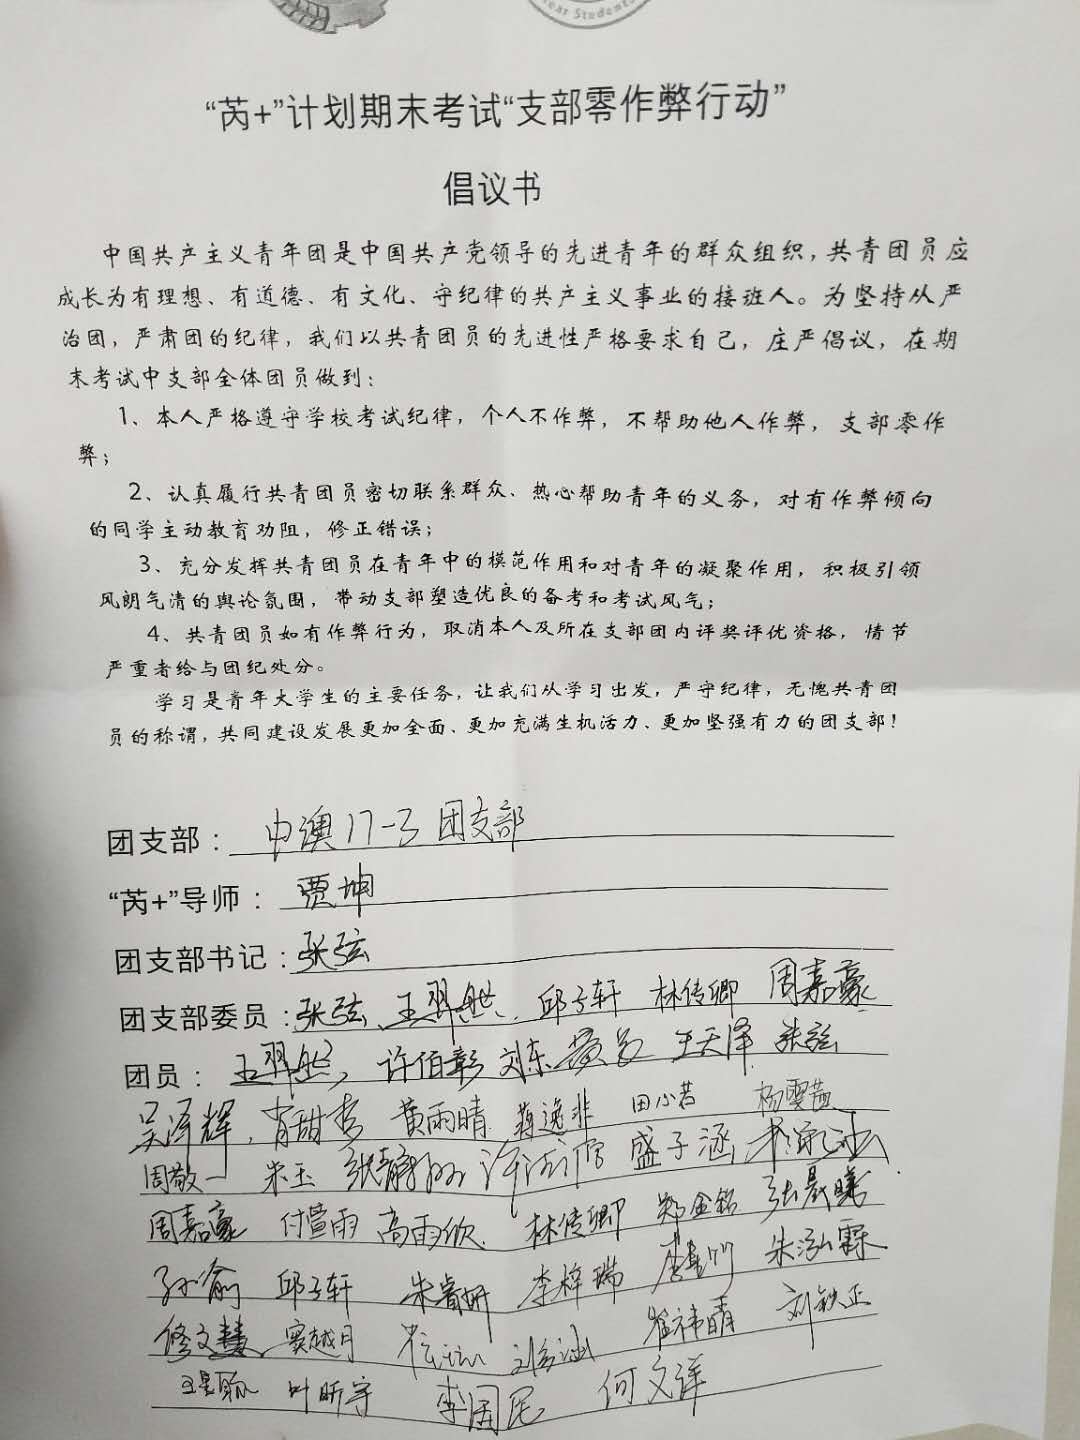 ear Students
“芮+”计划期末考试“支部零作弊行动”
倡议书
中国共产主义青年团是中国共产党领导的先进青年的群众组织，共青团员应
成长为有理想、有道德、有文化、守纪律的共产主义事业的接班人。为坚持从严
治团，严肃团的纪律，我们以共青团员的先进性严格要求自己，庄严倡议，在期
末考试中支部全体团员做到：
1、本人严格遵守学校考试纪律，个人不作弊，不帮助他人作弊，支部零作
弊；
2、认真履行共青团员密切联系群众、热心帮助青年的义务，对有作弊倾向
的同学主动教育劝阻，修正错误；
3、充分发挥共青团员在青年中的模范作用和对青年的凝聚作用，积极引领
风朗气清的舆论氛围，带动支部塑造优良的备考和考试风气；
4、共青团员如有作弊行为，取消本人及所在支部团内评奖评优资格，情节
严重者给与团纪处分。
学习是青年大学生的主要任务，让我们从学习出发，严守纪律，无愧共青团
员的称谓，共同建设发展更加全面、更加充满生机活力、更加坚强有力的团支部！
团支部：中澳17-3团支部
“芮+”导师：贾坤
团支部书记：张弦
团支部委员：张弦、王翠然、邱子轩 林倩卿 周嘉豪
团员：王翠然， 许伯彰 刘东 王天泽 张弦
吴泽辉， 肖甜杏 黄雨晴 蒋逸非 田心若 杨雯茜
周敬一 朱玉 盛子涵
周嘉豪 付萱雨 高雨欣 林倩卿 郑金铭 张晨曦
孙俞 邱子轩 朱睿妍 李梓瑞 朱泓霖
修文慧 窦越月 崔祎晴 刘轶正
叶昕宇 李国民 何文详